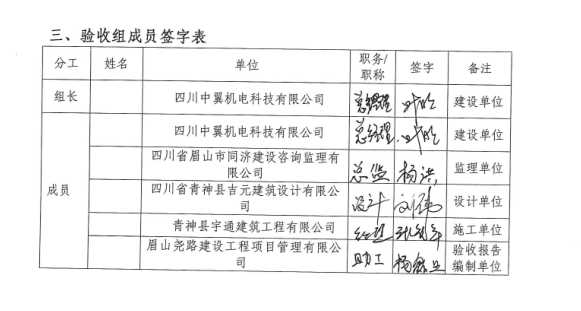 三、验收组成员签字表
分工 姓名 单位 职务/职称 签字 备注
组长 四川中翼机电科技有限公司 总经理 叶 建设单位
成员 四川中翼机电科技有限公司 总经理 叶 建设单位
四川省眉山市同济建设咨询监理有限公司 总监 杨洪 监理单位
四川省青神县吉元建筑设计有限公司 设计 设计单位
青神县宇通建筑工程有限公司 施工单位
眉山尧路建设工程项目管理有限公司 助工 杨 验收报告编制单位